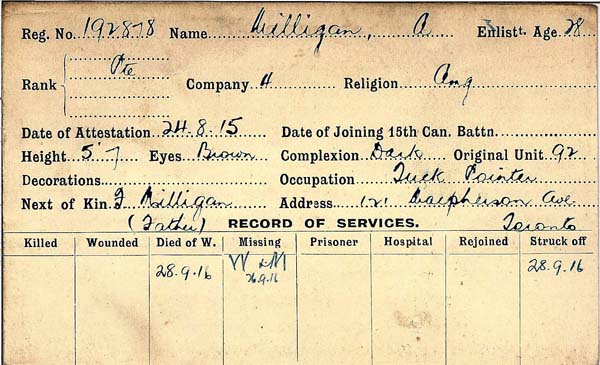 Reg. No. 192878 Name Milligan, A Enlistt. Age 28
Rank Pte Company 4 Religion Ang
Date of Attestation 24.8.15 Date of Joining 15th Can. Battn.
Height 5'7 Eyes Brown Complexion Dark Original Unit 92
Decorations Occupation Tuck Pointer
Next of Kin J Milligan Address 121 Macpherson Ave
(Father) RECORD OF SERVICES. Toronto
Killed Wounded Died of W. Missing Prisoner Hospital Rejoined Struck off
28.9.16 W & M 28.9.16
26.9.16